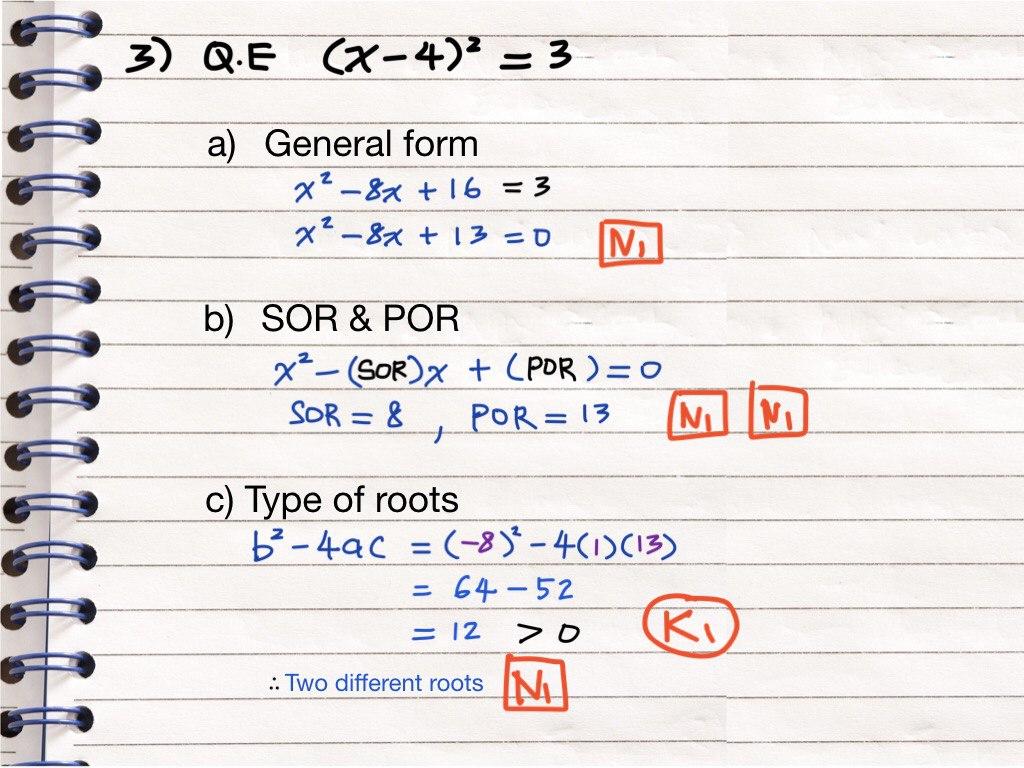 3) Q.E (x-4)² = 3
a) General form
x² - 8x + 16 = 3
x² - 8x + 13 = 0 N1
b) SOR & POR
x² - (SOR)x + (POR) = 0
SOR = 8 , POR = 13 N1 N1
c) Type of roots
b² - 4ac = (-8)² - 4(1)(13)
= 64 - 52
= 12 > 0 K1
∴ Two different roots N1